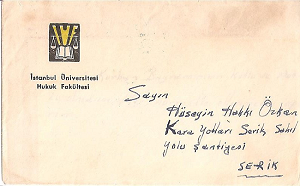 İstanbul Üniversitesi
Hukuk Fakültesi
Sayın
Hüseyin Hakkı Özkan
Kara Yolları Serik Sahil
Yolu Şantiyesi
SERİK